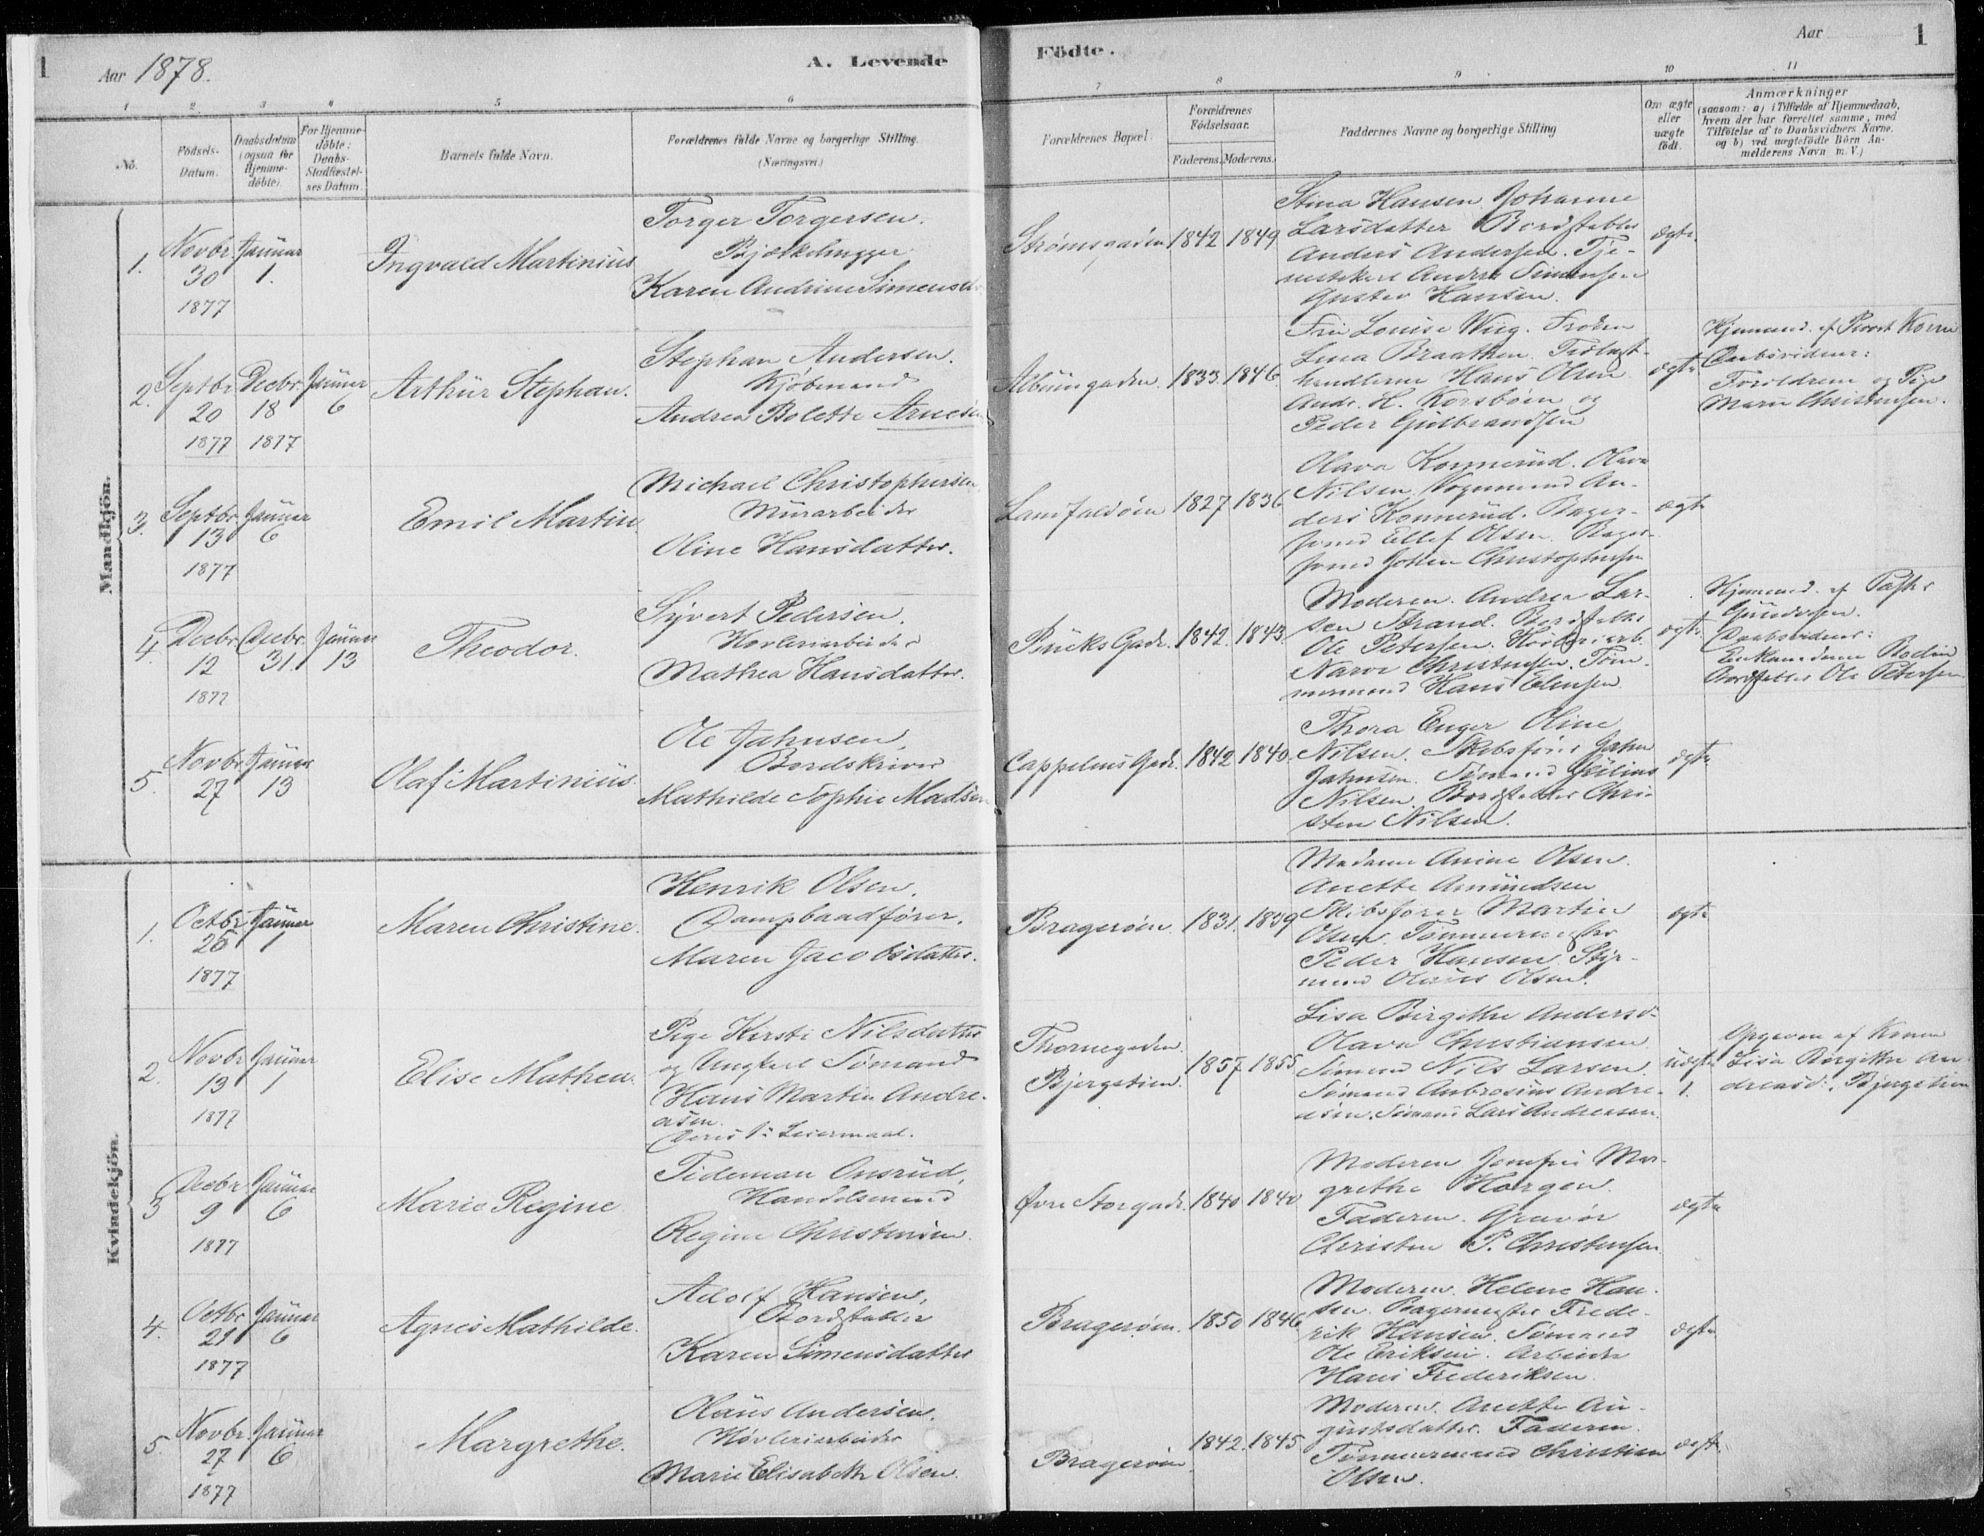 1
Aar 1878.
A. Levende
Födte.
Aar
1
1
2
3
4
5
6
7
8
9
10
11
No.
Födsels-
Datum.
Daabsdatum
(ogsaa for
Hjemme-
döbte).
For Hjemme-
döbte:
Daabs-
Stadfæstel-
ses Datum.
Barnets fulde Navn.
Forældrenes fulde Navne og borgerlige Stilling.
(Næringsvei.)
Forældrenes Bopæl.
Forældrenes
Födselsaar.
Faderens.
Moderens.
Faddernes Navne og borgerlige Stilling
Om ægte
eller
uægte
födt.
Anmærkninger
(saasom: a) i Tilfælde af Hjemmedaab,
hvem der har forrettet samme, med
Tilföielse af to Daabsvidners Navne.
og b) ved uægtefödte Börn An-
melderens Navn m. V.)
Mandkjön.
1.
Novbr.
30
1877
Januar
1.
Ingvald Martinius
Torger Torgersen.
Karen Andrine Simensd.
Strømsgaden
1842
1849
Stina Hansen Johanne
Larsdatter Bordstabler
Anders Andersen. Tje-
nestekarl Anders Simensen
Gustav Hansen.
ægte.
2.
Septbr.
20
1877
Decbr.
18
1877
Januar
6
Arthur Stephan.
Stephan Andersen.
Kjøbmand
Andrea Bolette Arnesen
Albumgaden.
1833.
1846
Fru Louise Wiig. Frøken
Lina Braathen. Trælast-
handlerne Hans Olsen
Andr. H. Korsbøen og
Peder Gulbrandsen
ægte
Hjemmed. af Provst
Daabsvidner:
Forældrene og Pige
Maren Christensen.
3.
Septbr.
13
1877
Januar
6
Emil Martin
Michael Christophersen
Murarbeider
Oline Hansdatter.
1827
1836
Olava Konnerud. Olava
Nilsen. Vognmand An-
ders Konnerud. Bager-
svend Ellef Olsen. Bager-
svend Christophersen
ægte
4.
Decbr.
12
1877
Decbr.
31.
Januar
13
Theodor.
Syvert Pedersen.
Høvleriarbeider
Mathea Hansdatter.
Gade.
1842.
1843
Moderen. Andrea Lar-
sen Strand.
Ole Petersen. Høvleriarb.
Narve Christensen. Tøm-
mermand Hans
ægte
Hjemmed. af Pastor
Gundersen.
Daabsvidner:
Enkemadame Bodin
Bordstabler Ole Petersen
5.
Novbr.
27
Januar
13
Olaf Martinius.
Ole Jahnsen,
Bordskriver
Mathilde Sophie Madsen
Cappelens Gade.
1842
1840.
Thora Enger Oline
Nilsen. Skibsfører Jahn
Jahnsen. Sømand Julius
Nilsen. Bordstabler Chri-
sten Nilsen.
ægte
Kvindekjön.
1.
Octbr.
26
1877
Januar
1
Maren Christine.
Henrik Olsen.
Dampbaadfører.
Maren Jacobsdatter.
Bragerøen
1831.
1839
Madame Anine Olsen.
Anette Amundsen
Skibsfører Martin
Olsen. Tømmermester
Peder Hansen. Styr-
mand Olaus Olsen.
ægte
2.
Novbr.
13
1877
Januar
1
Elise Mathea.
Pige Kirsti Nilsdatter
og Ungkarl Sømand
Hans Martin Andre-
asen.
Deres 1. Leiermaal.
Thornegaden.
Bjergstien.
1857
1855
Lisa Birgitte Andersd.
Olava Christiansen
Sømand Nils Larsen
Sømand Ambrosius Andre-
asen. Sømand Lars Andreasen.
uægte
1.
Opgiven af Konen
Lisa Birgitte An-
dreasd. Bjergstien
3
Decbr
9
1877
Januar
6
Marie Regine
Tideman Onsrud,
Handelsmand
Regine Christensen.
Øvre Storgade.
1840
1840
Moderen Josefine Mar-
grethe Horgen.
Faderen. Gravør
Christen P. Christensen.
ægte
4.
Octbr
29
1877
Januar
6
Agnes Mathilde.
Adolf Hansen,
Bordstabler
Karen Simensdatter
Bragerøen.
1850
1846
Moderen. Helene Han-
sen. Bagermester Frede-
rik Hansen. Sømand
Ole Eriksen. Arbeider
Hans Frederiksen.
ægte
5.
Novbr.
27
1877
Januar
6
Margrethe.
Olaus Andersen.
Høvleriarbeider
Marie Elisabeth Olsen.
Bragerøen
1842.
1845
Moderen. Anette Au-
gustsdatter. Faderen.
Tømmermand Christian
Olsen.
ægte